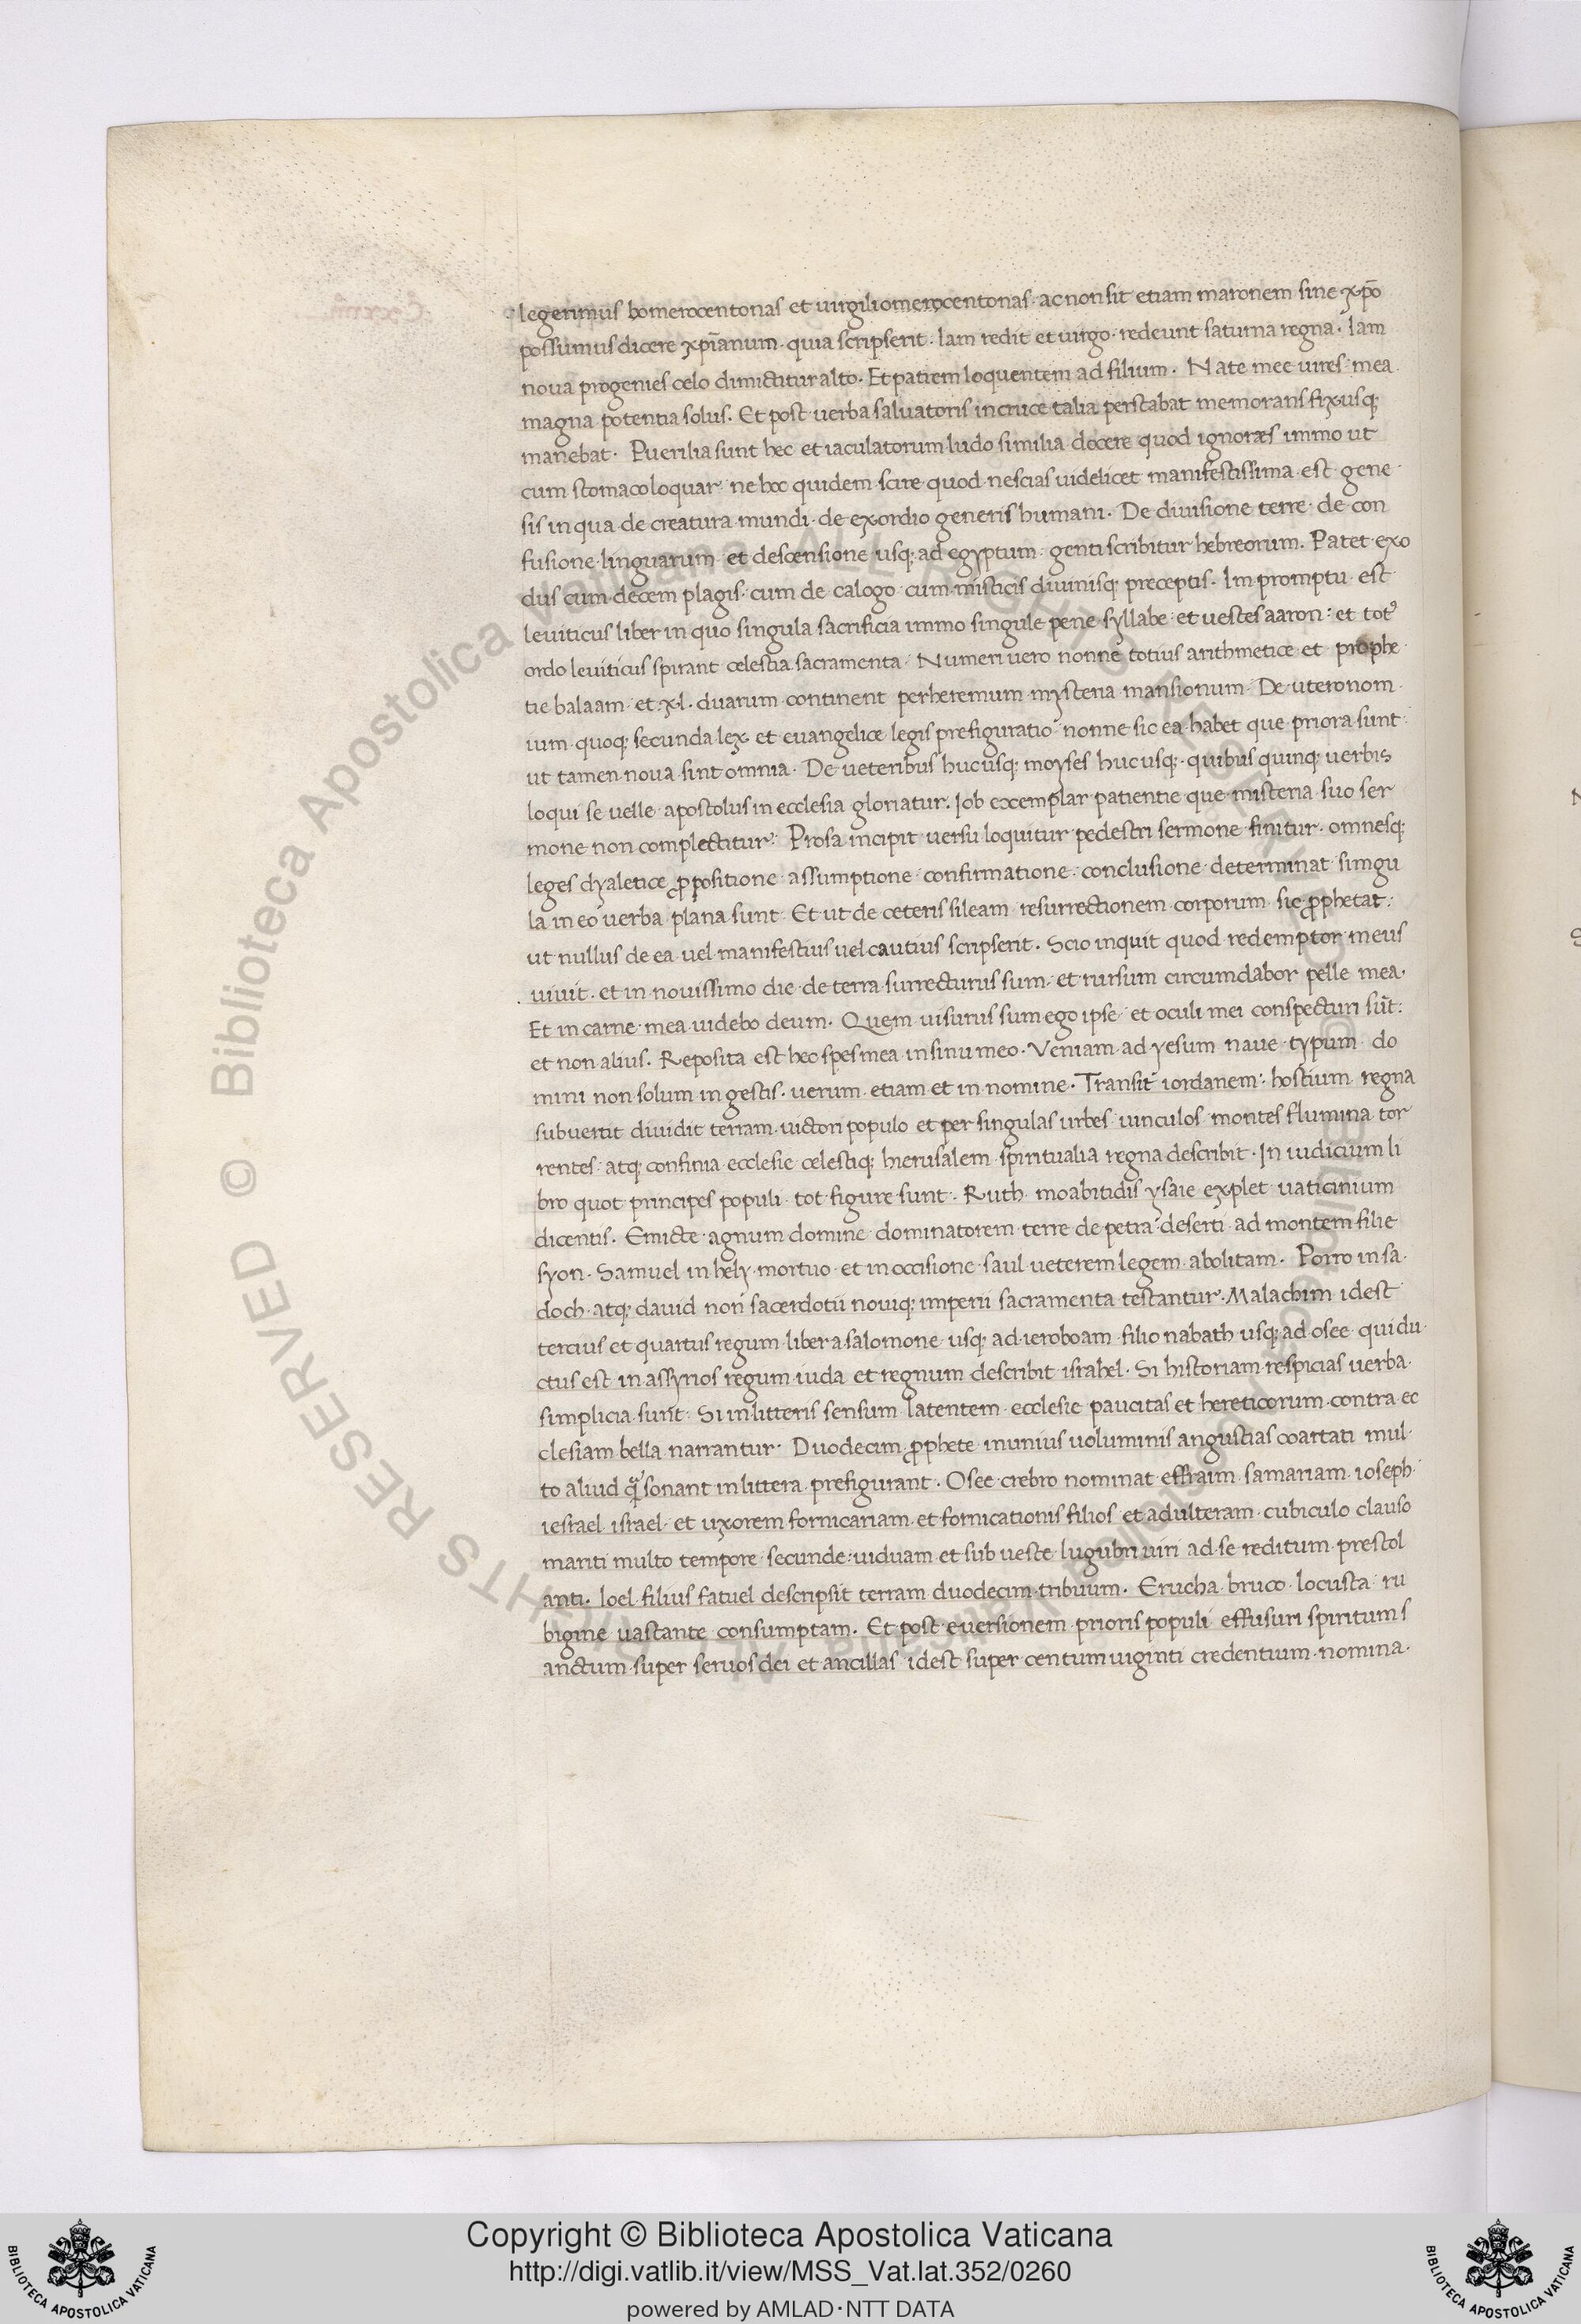 legerimus homerocentonas et uirgiliomerocentonas· ac non sit etiam maronem sine xp̄o
possumus dicere xp̄ianum· quia scripserit· Iam redit et uirgo· redeunt saturna regna· Iam
noua progenies celo dimictitur alto· Et patrem loquentem ad filium· Nate mee uires· mea
magna potentia solus. Et post uerba saluatoris in cruce talia perstabat memorans fixusq;
manebat· Puerilia sunt hec et iaculatorum ludo similia docere quod ignores immo ut
cum stomaco loquar· ne hoc quidem scire quod nescias uidelicet manifestissima est gene
sis in qua de creatura mundi· de exordio generis humani· De diuisione terre· de con
fusione linguarum· et descensione usq; ad egyptum· genti scribitur hebreorum. Patet exo
dus cum decem plagis· cum de calogo cum misticis diuinisq; preceptis· Im promptu est
leuiticus liber in quo singula sacrificia immo singule pene syllabe et uestes aaron: et totꝰ
ordo leuiticus spirant celestia sacramenta· Numeri uero nonne totius arithmetice et prophe
tie balaam· et xl· duarum continent perheremum mysteria mansionum· De uteronom
ium quoq; secunda lex et euangelice legis prefiguratio nonne sic ea habet que priora sunt
ut tamen noua sint omnia· De ueteribus hucusq; moyses hucusq;· quibus quinq; uerbis
loqui se uelle apostolus in ecclesia gloriatur. Iob exemplar patientie que misteria suo ser
mone non complectitur· Prosa incipit uersu loquitur pedestri sermone finitur· omnesq;
leges dyaletice ꝓpositione assumptione confirmatione conclusione determinat singu
la in eo uerba plana sunt· Et ut de ceteris sileam resurrectionem corporum sic ꝓphetat:
ut nullus de ea uel manifestius uel cautius scripserit· Scio inquit quod redemptor meus
uiuit· et in nouissimo die de terra surrecturus sum· et rursum circumdabor pelle mea·
Et in carne mea uidebo deum· Quem uisurus sum ego ipse et oculi mei conspecturi sūt:
et non alius. Reposita est hec spes mea in sinu meo· Veniam ad yesum naue typum do
mini non solum in gestis· uerum etiam et in nomine· Transit iordanem: hostium regna
subuertit diuidit terram uictori populo et per singulas urbes uinculos montes flumina tor
rentes· atq; confinia ecclesie celestiq; hierusalem spiritualia regna describit· In iudicium li
bro quot principes populi tot figure sunt· Ruth moabitidis ysaie explet uaticinium
dicentis· Emicte agnum domine dominatorem terre de petra deserti ad montem filie
syon· Samuel in hely mortuo et in occisione saul ueterem legem abolitam· Porro in sa
doch· atq; dauid noui sacerdotii nouiq; imperii sacramenta testantur· Malachim idest
tercius et quartus regum liber a salomone usq; ad ieroboam filio nabath usq; ad osee qui du
ctus est in assyrios regum iuda et regnum describit israhel· Si historiam respicias uerba
simplicia sunt· Si in litteris sensum latentem ecclesie paucitas et hereticorum contra ec
clesiam bella narrantur· Duodecim ꝓphete inunius uoluminis angustias coartati mul
to aliud sonant in littera prefigurant· Osee crebro nominat effraim samariam ioseph
iesrael israel et uxorem fornicariam et fornicationis filios et adulteram cubiculo clauso
mariti multo tempore secunde: uiduam et sub ueste lugubri uiri ad se reditum prestol
anti· Ioel filius fatuel descripsit terram duodecim tribuum· Erucha bruco locusta ru
bigine uastante consumptam· Et post euersionem prioris populi effusuri spiritum s
anctum super seruos dei et ancillas idest super centum uiginti credentium nomina·
Copyright © Biblioteca Apostolica Vaticana
http://digi.vatlib.it/view/MSS_Vat.lat.352/0260
powered by AMLAD·NTT DATA